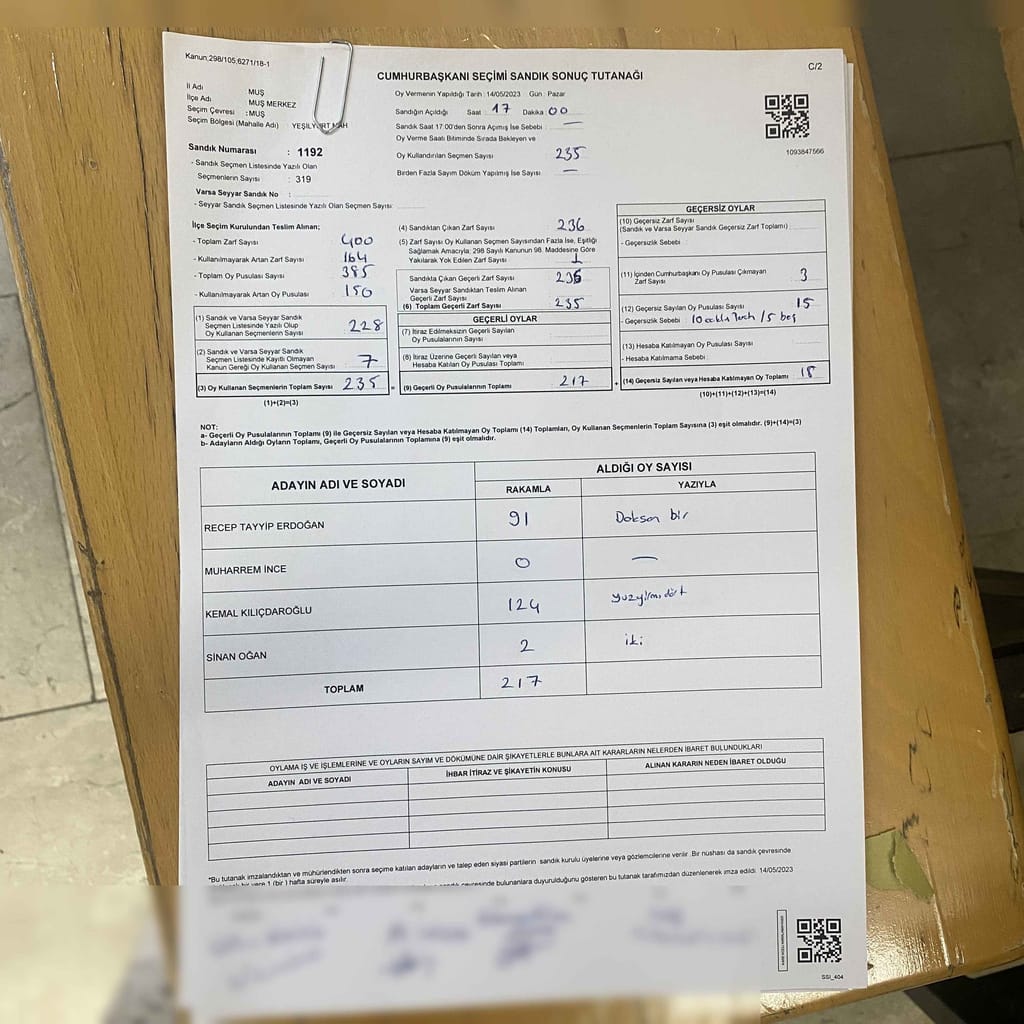 Kanun;298/105;6271/18-1
C/2
CUMHURBAŞKANI SEÇİMİ SANDIK SONUÇ TUTANAĞI
İl Adı MUŞ
İlçe Adı MUŞ MERKEZ
Seçim Çevresi : MUŞ
Seçim Bölgesi (Mahalle Adı) YEŞİLYURT MAH
Oy Vermenin Yapıldığı Tarih : 14/05/2023 Gün : Pazar
Sandığın Açıldığı Saat : 17 Dakika : 00
Sandık Saat 17 00'den Sonra Açımış İse Sebebi : —
Oy Verme Saati Bitiminde Sırada Bekleyen ve
Oy Kullandırılan Seçmen Sayısı 235
Birden Fazla Sayım Döküm Yapılmış İse Sayısı —
1093847566
Sandık Numarası : 1192
- Sandık Seçmen Listesinde Yazılı Olan
Seçmenlerin Sayısı : 319
Varsa Seyyar Sandık No :
- Seyyar Sandık Seçmen Listesinde Yazılı Olan Seçmen Sayısı:
İlçe Seçim Kurulundan Teslim Alınan;
- Toplam Zarf Sayısı 400
- Kullanılmayarak Artan Zarf Sayısı 164
- Toplam Oy Pusulası Sayısı 385
- Kullanılmayarak Artan Oy Pusulası 150
(1) Sandık ve Varsa Seyyar Sandık
Seçmen Listesinde Yazılı Olup
Oy Kullanan Seçmenlerin Sayısı 228
(2) Sandık ve Varsa Seyyar Sandık
Seçmen Listesinde Kayıtlı Olmayan
Kanun Gereği Oy Kullanan Seçmen Sayısı 7
(3) Oy Kullanan Seçmenlerin Toplam Sayısı 235
(1)+(2)=(3)
(4) Sandıktan Çıkan Zarf Sayısı 236
(5) Zarf Sayısı Oy Kullanan Seçmen Sayısından Fazla İse, Eşitliği
Sağlamak Amacıyla; 298 Sayılı Kanunun 98. Maddesine Göre
Yakılarak Yok Edilen Zarf Sayısı 1
Sandıkta Çıkan Geçerli Zarf Sayısı 235
Varsa Seyyar Sandıktan Teslim Alınan
Geçerli Zarf Sayısı
(6) Toplam Geçerli Zarf Sayısı 235
GEÇERLİ OYLAR
(7) İtiraz Edilmeksizin Geçerli Sayılan
Oy Pusulasının Sayısı
(8) İtiraz Üzerine Geçerli Sayılan veya
Hesaba Katılan Oy Pusulası Toplamı
= (9) Geçerli Oy Pusulalarının Toplamı 217
GEÇERSİZ OYLAR
(10) Geçersiz Zarf Sayısı
(Sandık ve Varsa Seyyar Sandık Geçersiz Zarf Toplamı)
- Geçersizlik Sebebi :
(11) İçinden Cumhurbaşkanı Oy Pusulası Çıkmayan
Zarf Sayısı 3
(12) Geçersiz Sayılan Oy Pusulası Sayısı 15
- Geçersizlik Sebebi : 10 / 5 boş
(13) Hesaba Katılmayan Oy Pusulası Sayısı
- Hesaba Katılmama Sebebi :
+ (14) Geçersiz Sayılan veya Hesaba Katılmayan Oy Toplamı 18
(10)+(11)+(12)+(13)=(14)
NOT:
a- Geçerli Oy Pusulalarının Toplamı (9) ile Geçersiz Sayılan veya Hesaba Katılmayan Oy Toplamı (14) Toplamları, Oy Kullanan Seçmenlerin Toplam Sayısına (3) eşit olmalıdır. (9)+(14)=(3)
b- Adayların Aldığı Oyların Toplamı, Geçerli Oy Pusulalarının Toplamına (9) eşit olmalıdır.
ADAYIN ADI VE SOYADI ALDIĞI OY SAYISI
RAKAMLA YAZIYLA
RECEP TAYYİP ERDOĞAN 91 Doksan bir
MUHARREM İNCE 0 —
KEMAL KILIÇDAROĞLU 124 yüzyirmidört
SİNAN OĞAN 2 iki
TOPLAM 217
OYLAMA İŞ VE İŞLEMLERİNE VE OYLARIN SAYIM VE DÖKÜMÜNE DAİR ŞİKAYETLERLE BUNLARA AİT KARARLARIN NELERDEN İBARET BULUNDUKLARI
ADAYIN ADI VE SOYADI İHBAR İTİRAZ VE ŞİKAYETİN KONUSU ALINAN KARARIN NEDEN İBARET OLDUĞU
*Bu tutanak imzalandıktan ve mühürlendikten sonra seçime katılan adayların ve talep eden siyasi partilerin sandık kurulu üyelerine veya gözlemcilerine verilir. Bir nüshası da sandık çevresinde
bir yere 1 (bir) hafta süreyle asılır.
sandık çevresinde bulunanlara duyurulduğunu gösteren bu tutanak tarafımızdan düzenlenerek imza edildi. 14/05/2023
SSI_404